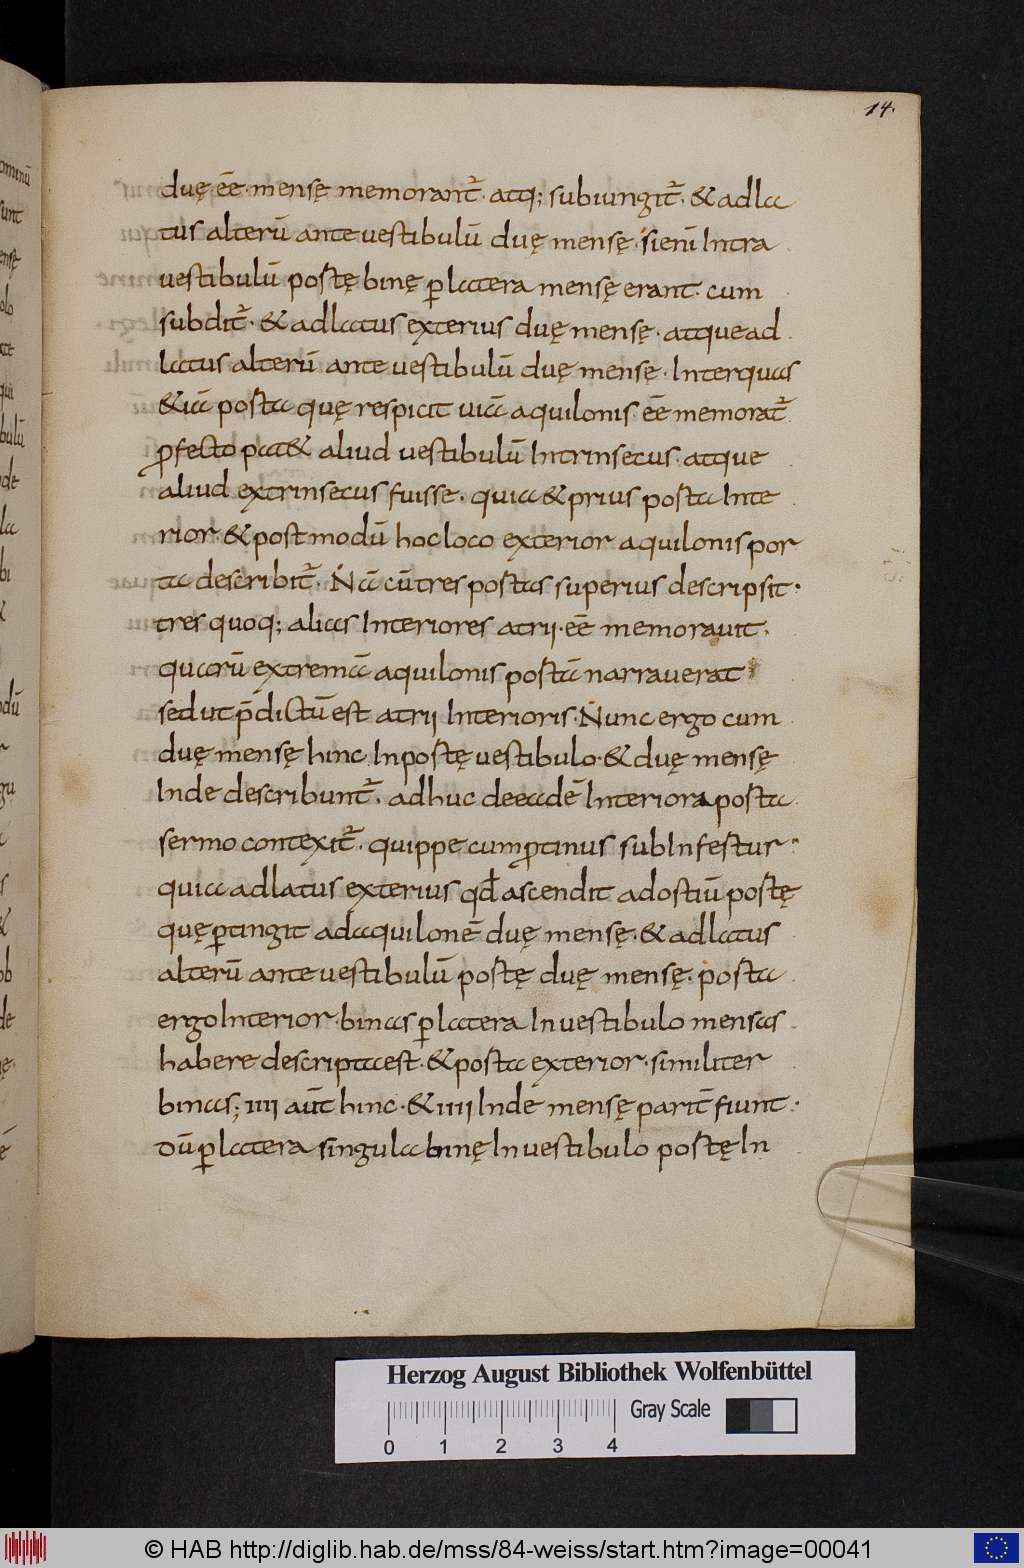 14.
duę ēe· mensę memorant᷑· atq; subiungit᷑· & adla
tus alterū ante vestibulū duę mensę· si enī Intra
vestibulū portę binę ꝑ latera mensę erant· cum
subdit᷑· & ad latus exterius duę mensę· atque ad
latus alterū ante vestibulū duę mensę· Inter quas
& iā porta quę respicit viā aquilonis ēe memorat᷑
ꝓfecto pat& aliud vestibulū Intrinsecus· atque
aliud extrinsecus fuisse· quia & prius porta Inte
rior· & postmodū hoc loco exterior aquilonis por
ta describit᷑· Nā cū tres portas superius descripsit·
tres quoq; alias Interiores atrii· ēe memorauit·
quarū extremā aquilonis portā narrauerat
sed ut p̄dictū est atrii Interioris· Nunc ergo cum
duę mensę hinc In portę vestibulo· & duę mensę
Inde describunt᷑· adhuc de eadē Interiora porta
sermo contexit᷑· quippe cum ꝓtinus subInfertur·
quia ad latus exterius qđ ascendit ad ostiū portę
quę ꝑtingit ad aquilonē duę mensę· & ad latus
alterū ante vestibulū portę duę mensę· porta
ergo Interior· binas ꝑ latera In vestibulo mensas
habere descripta est· & porta exterior· similiter
binas; IIII aūt hinc· & IIII Inde mensę parit̄ fiunt·
Dū ꝑ latera singula binę In vestibulo portę In
Herzog August Bibliothek Wolfenbüttel
Gray Scale
0 1 2 3 4
© HAB http://diglib.hab.de/mss/84-weiss/start.htm?image=00041